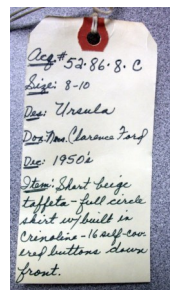 Acq.# 52.86.8.C
Size: 8-10
Des: Ursula
Don: Mrs. Clarence Ford
Dec: 1950's
Item: Short beige
taffeta - full circle
skirt w/ built in
Crinoline - 16 self-cov-
ered buttons down
front.